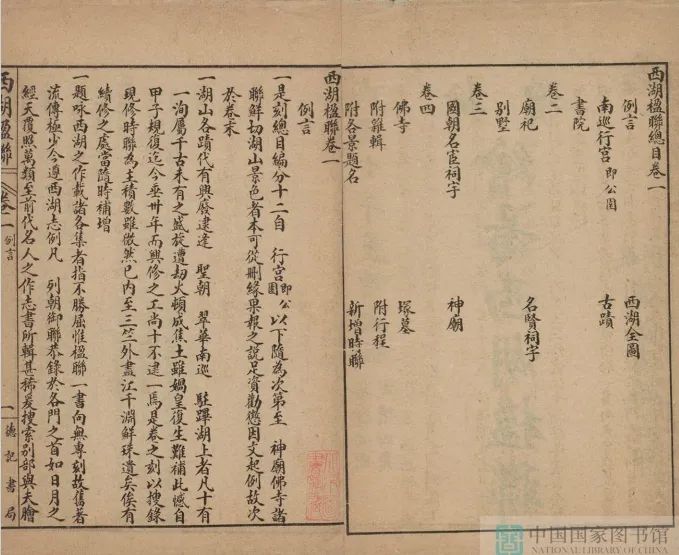 西湖楹聯總目卷一
例言 西湖全圖
南巡行宮即公園 古蹟
書院
卷二
廟祀 名賢祠宇
別墅
卷三
國朝名宦祠宇 神廟
卷四
佛寺 塚墓
附雜輯 附行程
附各景題名 新增時聯
西湖楹聯卷一
例言
一是刻總目編分十二自 行宮即公園以下隨為次第至 神廟佛寺諸
聯鮮切湖山景色者本可從刪緣果報之說足資勸懲因文起例故次
於卷末
一湖山各蹟代有興廢建逢 聖朝 翠華南巡 駐蹕湖上者凡十有
一洵屬千古未有之盛旋遭劫火頓成焦土雖媧皇復生難補此憾自
甲子規復迄今垂卅年而興修之工尚十不逮一焉是卷之刻以搜錄
現修時聯為主積數雖微然已內至三竺外盡江干淵鮮珠遺矣俟有
續修之處當隨時補增
一題咏西湖之作載諸各集者指不勝屈惟楹聯一書向無專刻故舊著
流傳極少今遵西湖志例凡 列朝御聯恭錄於各門之首如日月之
經天覆照萬類至前代名人之作志書所輯甚稀爰搜索別部與夫膾
西湖楹聯 卷一 例言 一 德記書局
中国国家图书馆
NATIONAL LIBRARY OF CHINA